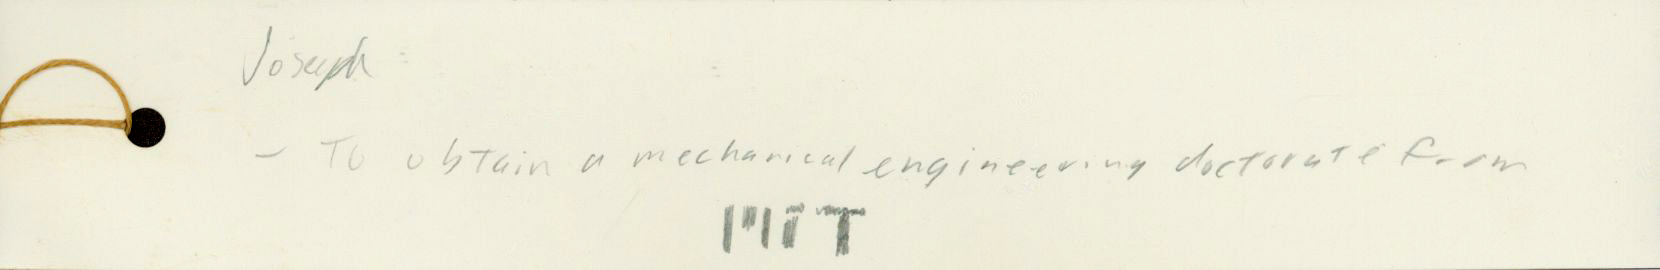 Joseph
- To obtain a mechanical engineering doctorate from
MIT